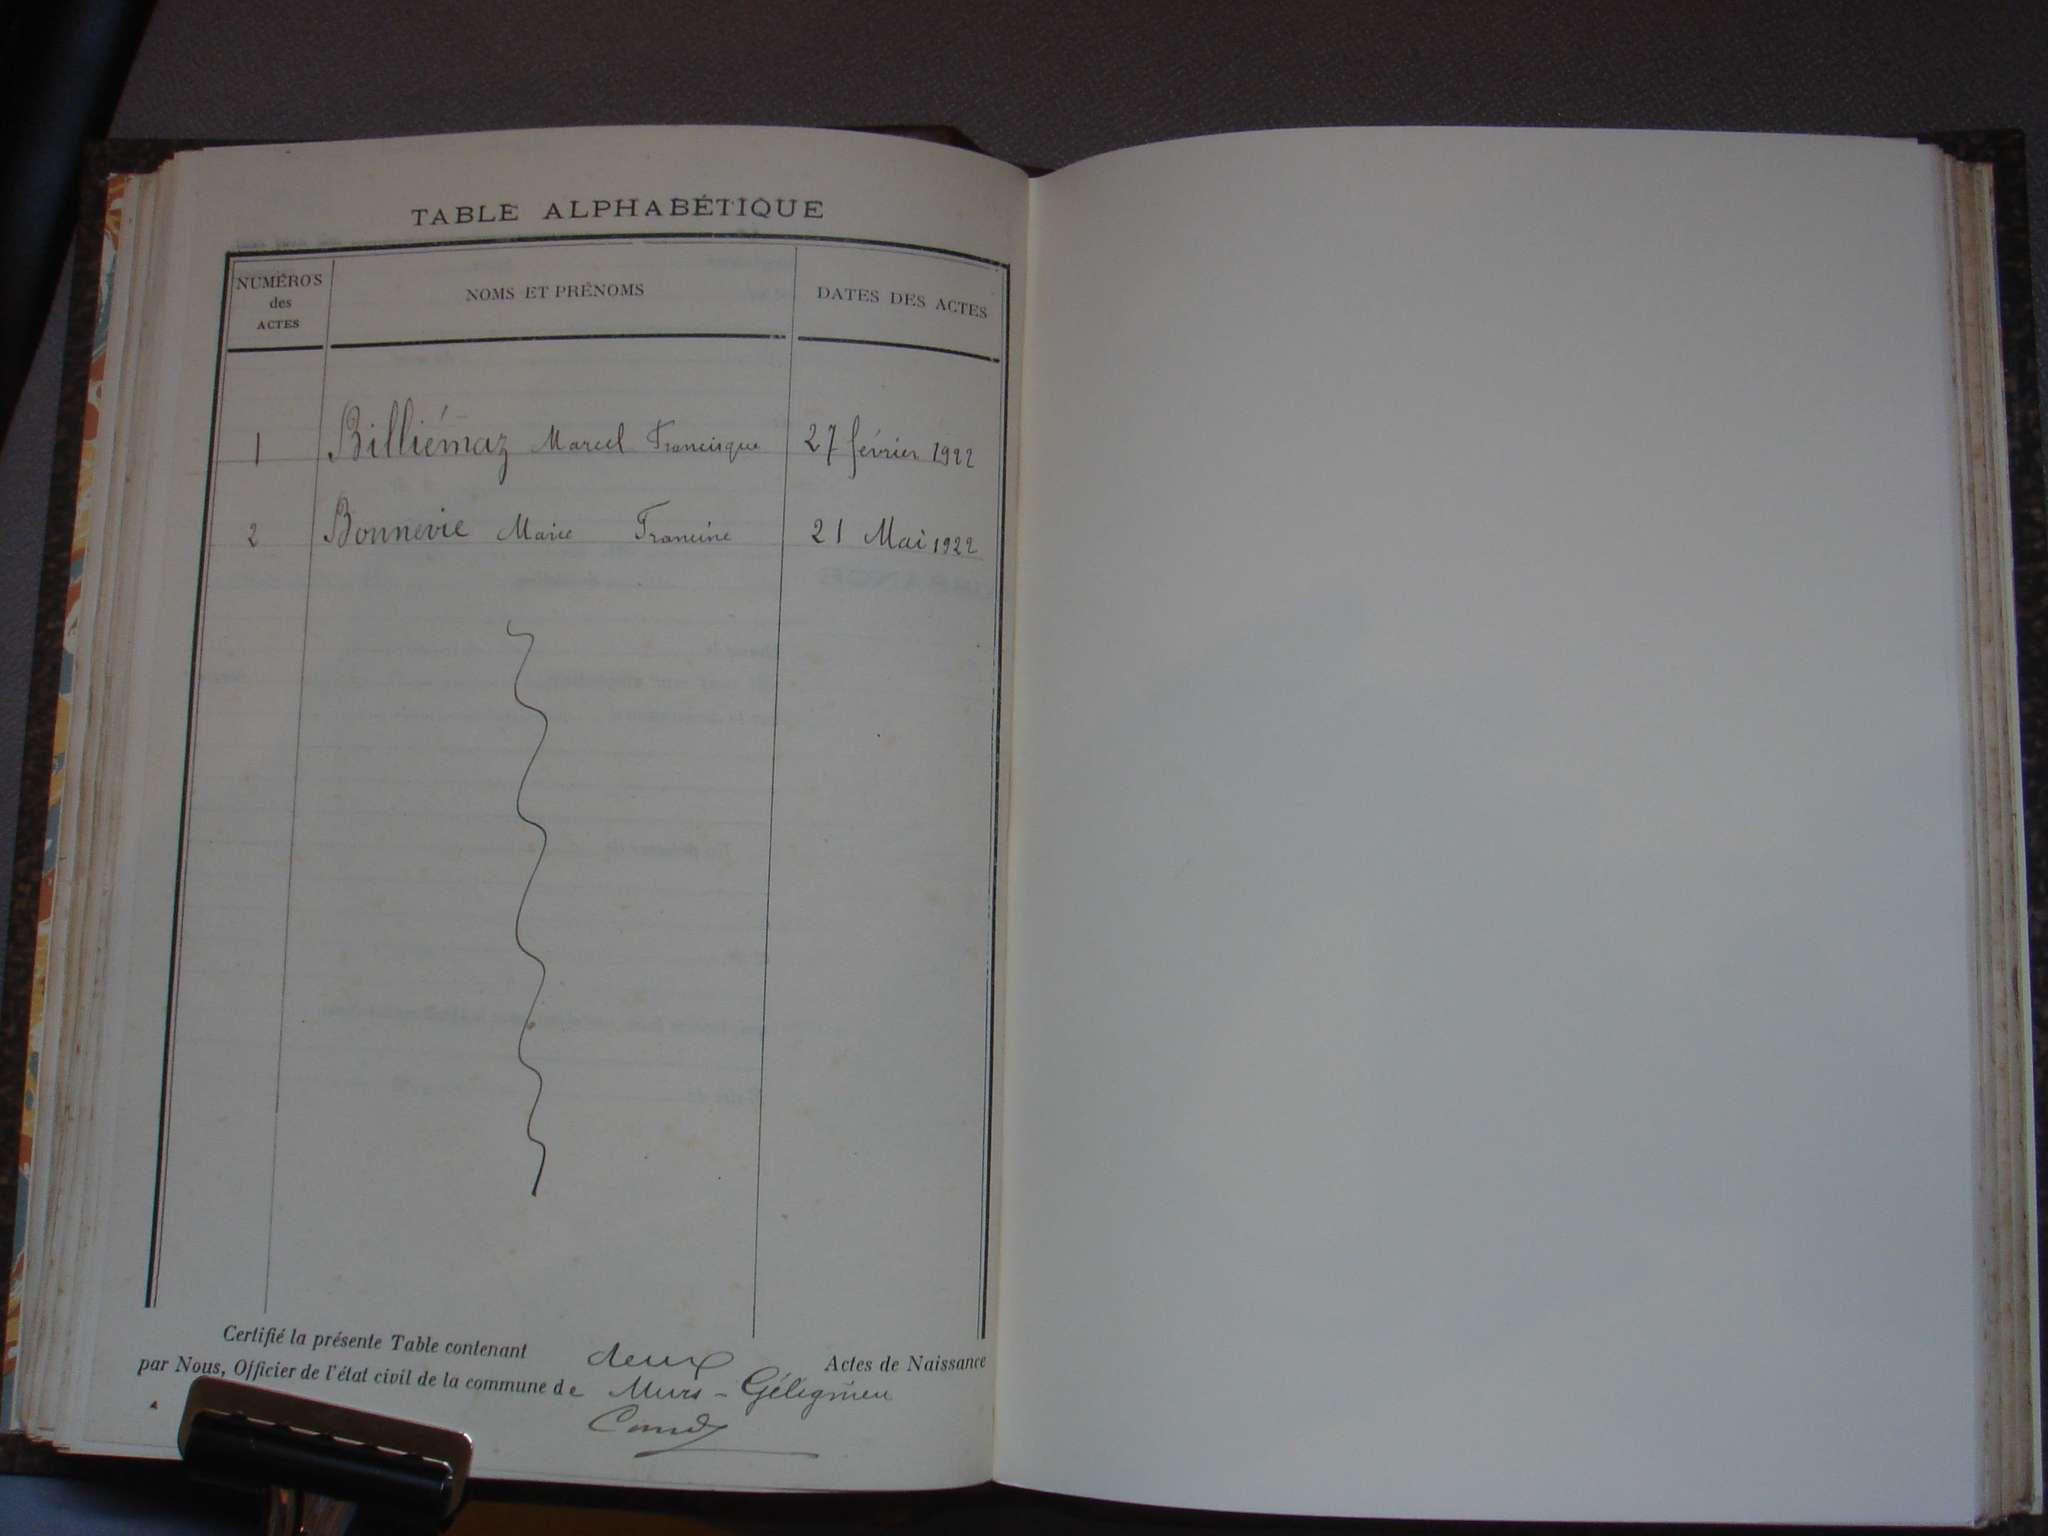 TABLE ALPHABÉTIQUE
NUMÉROS
des
ACTES
NOMS ET PRÉNOMS
DATES DES ACTES
1 Billiémaz Marcel Francisque 27 février 1922
2 Bonnevie Marie Francine 21 Mai 1922
Certifié la présente Table contenant deux Actes de Naissance
par Nous, Officier de l'état civil de la commune de Murs-Gélignieu